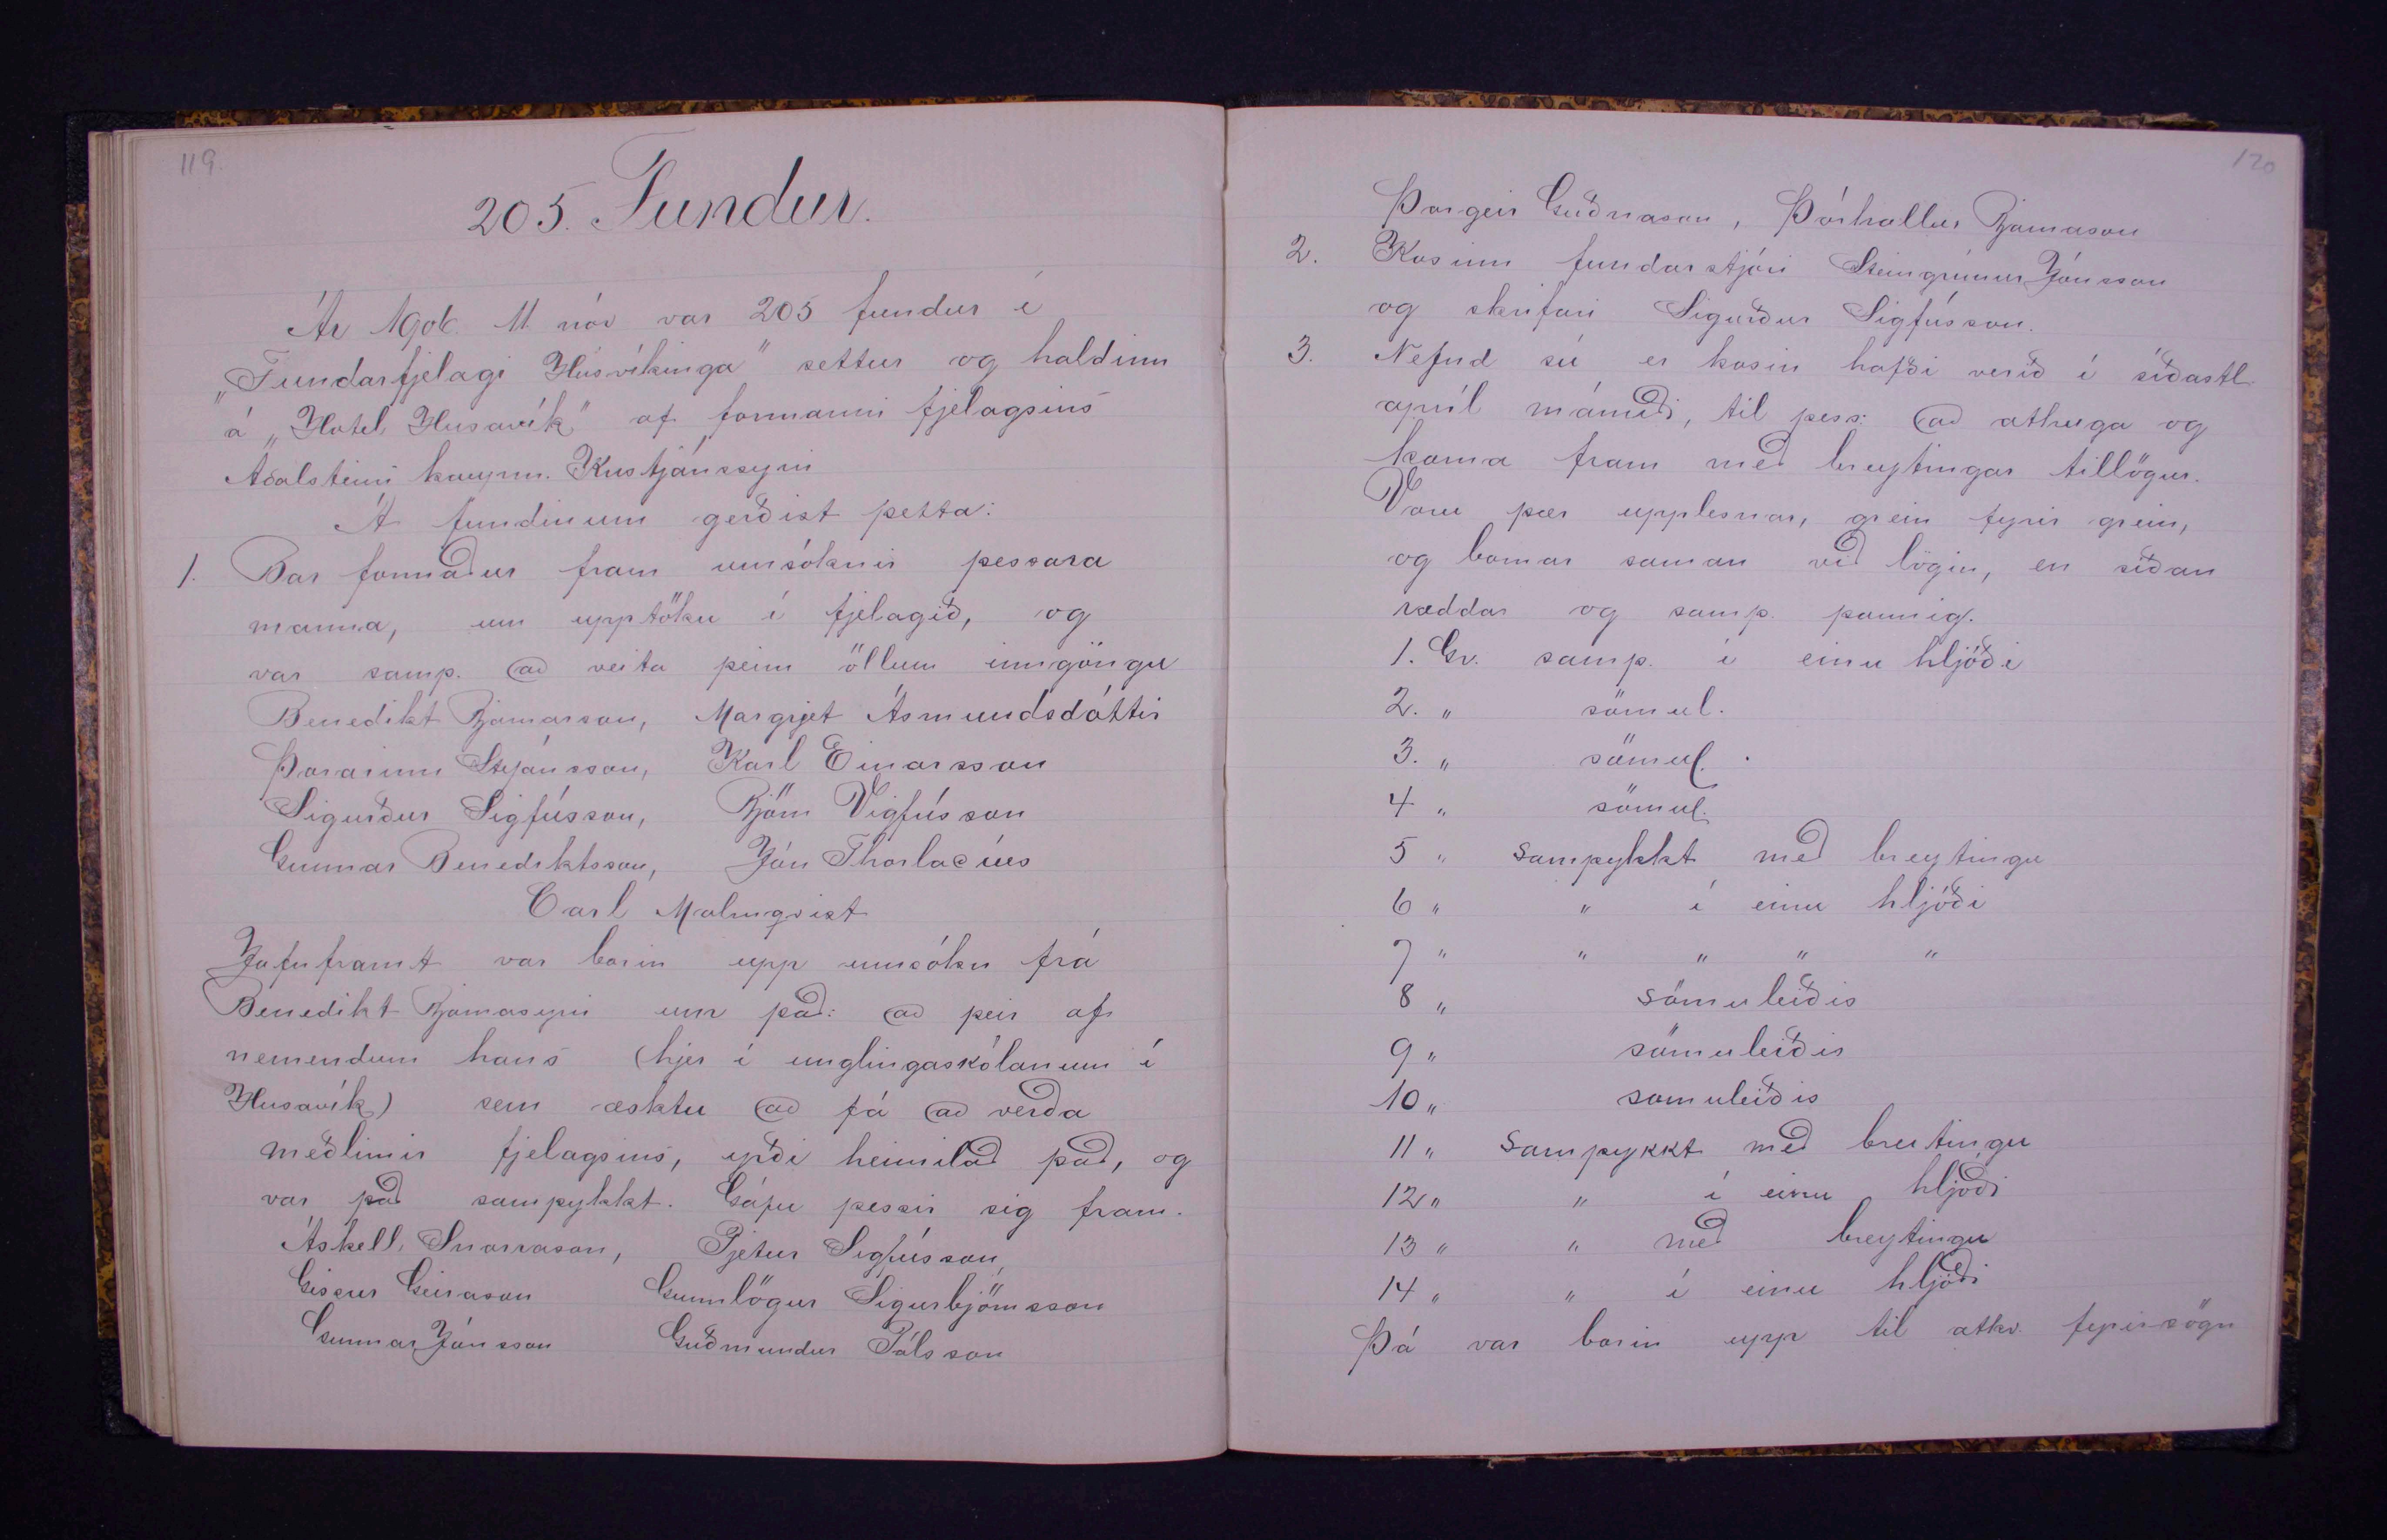 119.
205. Fundur.
Ár 1906. 11 nóv var 205 fundur í
„Fundarfjelagi Húsvíkinga" settur og haldinn
á „Hotel Husavík" af formanni fjelagsins
Aðalsteini kaupm. Kristjánssyni
Á fundinum gerðist þetta:
1. Bar formaður fram umsóknir þessara
manna, um upptöku í fjelagið, og
var samþ. að veita þeim öllum inngöngu
Benedikt Bjarnarson, Margrjet Ásmundsdóttir
Þorarinn Stefánsson, Karl Einarsson
Sigurður Sigfússon, Björn Vigfússon
Gunnar Benediktsson, Jón Thorlacíus
Carl Malmqvist
Jafnframt var borin upp umsókn frá
Benedikt Bjarnasyni um það: að þeir af
nemendum hans (hjer í unglingaskólanum í
Husavík) sem æsktu að fá að verða
meðlimir fjelagsins, yrði heimilað það, og
var það samþykkt. Gáfu þessir sig fram.
Áskell Snorrason, Pjetur Sigfússon,
Gissur Geirason Gunnlögur Sigurbjörnsson
Gunnar Jónsson Guðmundur Pálsson
120
Þorgeir Guðnason, Þórhallur Bjarnason
2. Kosinn fundarstjóri Steingrímur Jónsson
og skrifari Sigurður Sigfússon.
3. Nefnd sú er kosin hafði verið í síðastl.
apríl mánuði, til þess: að athuga og
koma fram með breytingar tillögur.
Voru þær upplesnar, grein fyrir grein,
og bornar saman við lögin, en síðan
ræddar og samþ. þannig.
1. Gr. samþ. í einu hljóði
2. " sömul.
3. " sömul.
4 " sömul.
5 " samþykkt með breytingu
6 " " í einu hljóði
7 " " " " "
8 " sömuleiðis
9 " sömuleiðis
10 " somuleiðis
11 " samþykkt með breitingu
12 " " í einu hljóði
13 " " með breytingu
14 " " í einu hljóði
Þá var borin upp til atkv. fyrirsögn